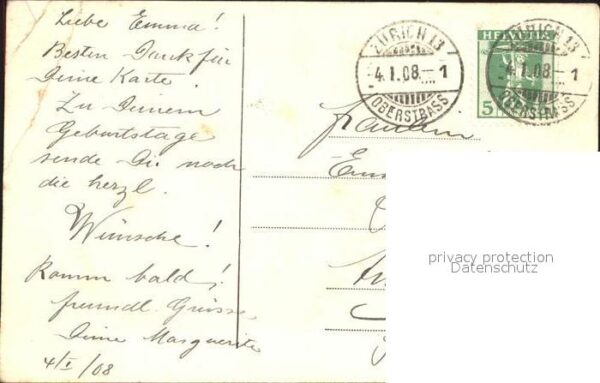 Liebe Emma!
Besten Dank für
Deine Karte
Zu Deinem
Geburtstage
sende Dir noch
die herzl.
Wünsche!
Komm bald!
freundl. Grüsse
Deine Marguerite
4/I /08
ZÜRICH 13
4.1.08. 1
OBERSTRASS
HELVETIA
5
ZÜRICH 13
4.1.08. 1
OBERSTRASS
Fräulein
privacy protection
Datenschutz